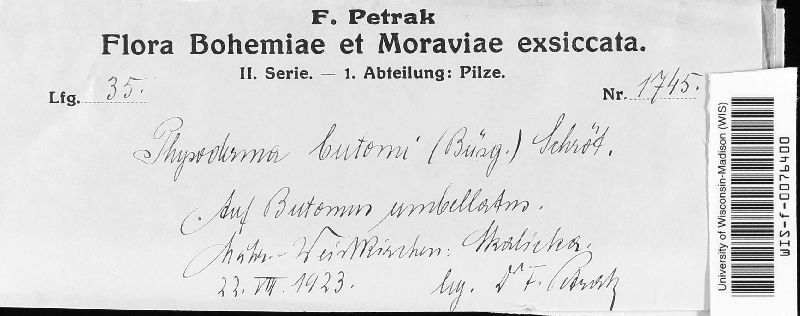 F. Petrak
Flora Bohemiae et Moraviae exsiccata.
II. Serie. — 1. Abteilung: Pilze.
Lfg. 35.
Nr. 1745.
Physoderma butomi (Büsg.) Schröt.
Auf Butomus umbellatus.
Mähr.-Weisskirchen: Skalička.
22. VII. 1923. lg. Dr F. Petrak
University of Wisconsin-Madison (WIS)
WIS-f-0076400